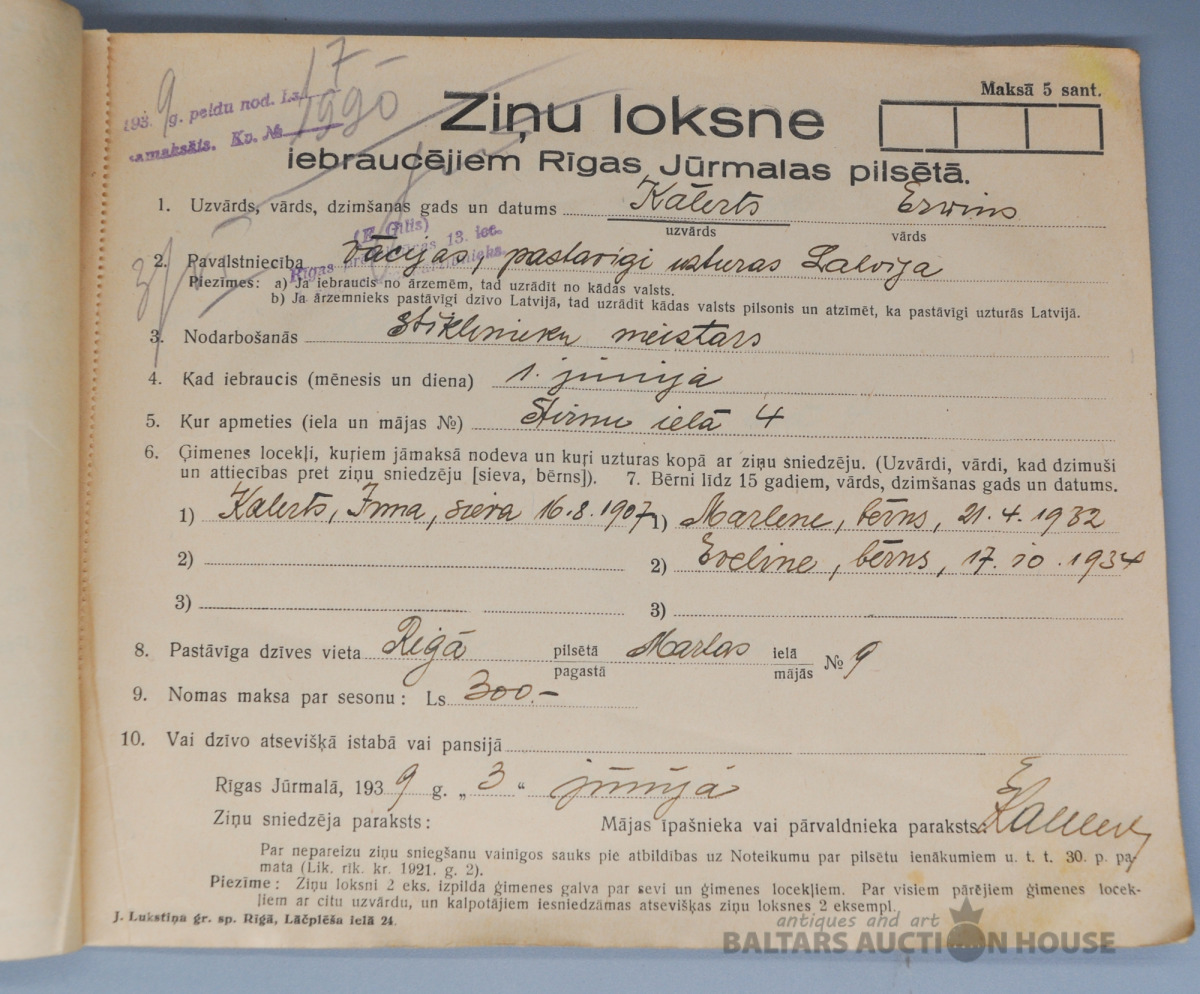 193 9 g. peldu nod. Ls 17
samaksāts. Kv. № 1990
Maksā 5 sant.
Ziņu loksne
iebraucējiem Rīgas Jūrmalas pilsētā.
1. Uzvārds, vārds, dzimšanas gads un datums Kalerts Erwins
uzvārds vārds
(E. Gilis)
Rīgas 13. iec.
2. Pavalstniecība Vācijas, pastavigi uzturas Latvija
Piezīmes: a) Ja iebraucis no ārzemēm, tad uzrādīt no kādas valsts.
b) Ja ārzemnieks pastāvīgi dzīvo Latvijā, tad uzrādīt kādas valsts pilsonis un atzīmēt, ka pastāvīgi uzturās Latvijā.
3. Nodarbošanās Stiklinieku meistars
4. Kad iebraucis (mēnesis un diena) 1. jūnijā
5. Kur apmeties (iela un mājas №) Stirnu ielā 4
6. Ģimenes locekļi, kuŗiem jāmaksā nodeva un kuŗi uzturas kopā ar ziņu sniedzēju. (Uzvārdi, vārdi, kad dzimuši
un attiecības pret ziņu sniedzēju [sieva, bērns]). 7. Bērni līdz 15 gadiem, vārds, dzimšanas gads un datums.
1) Kalerts, Irma, sieva 16.8.1907 1) Marlene, bērns, 21.4.1932
2) 2) Eveline, bērns, 17.10.1934
3) 3)
8. Pastāvīga dzīves vieta Rigā pilsētā Marlas ielā № 9
pagastā mājās
9. Nomas maksa par sesonu: Ls 300.-
10. Vai dzīvo atsevišķā istabā vai pansijā
Rīgas Jūrmalā, 193 9 g. „ 3 “ jūnijā
Ziņu sniedzēja paraksts: Mājas īpašnieka vai pārvaldnieka paraksts:
Par nepareizu ziņu sniegšanu vainīgos sauks pie atbildības uz Noteikumu par pilsētu ienākumiem u. t. t. 30. p. pa-
mata (Lik. rīk. kr. 1921. g. 2).
Piezīme: Ziņu loksni 2 eks. izpilda ģimenes galva par sevi un ģimenes locekļiem. Par visiem pārējiem ģimenes locek-
ļiem ar citu uzvārdu, un kalpotājiem iesniedzāmas atsevišķas ziņu loksnes 2 eksempl.
J. Lukstiņa gr. sp. Rīgā, Lāčplēša ielā 24.
antiques and art
BALTARS AUCTION HOUSE